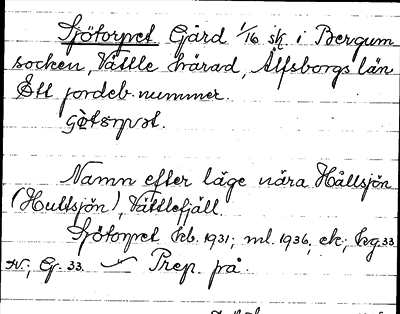 Sjötorpet Gård 1/16 sk. i Bergum
socken, Vättle härad, Älfsborgs län
Ett jordeb. nummer.
Namn efter läge nära Hållsjön
(Hultsjön), Vättlefjäll.
Sjötorpet kb. 1931; ml. 1936, ek;
Gr. 33. — Prep. på.